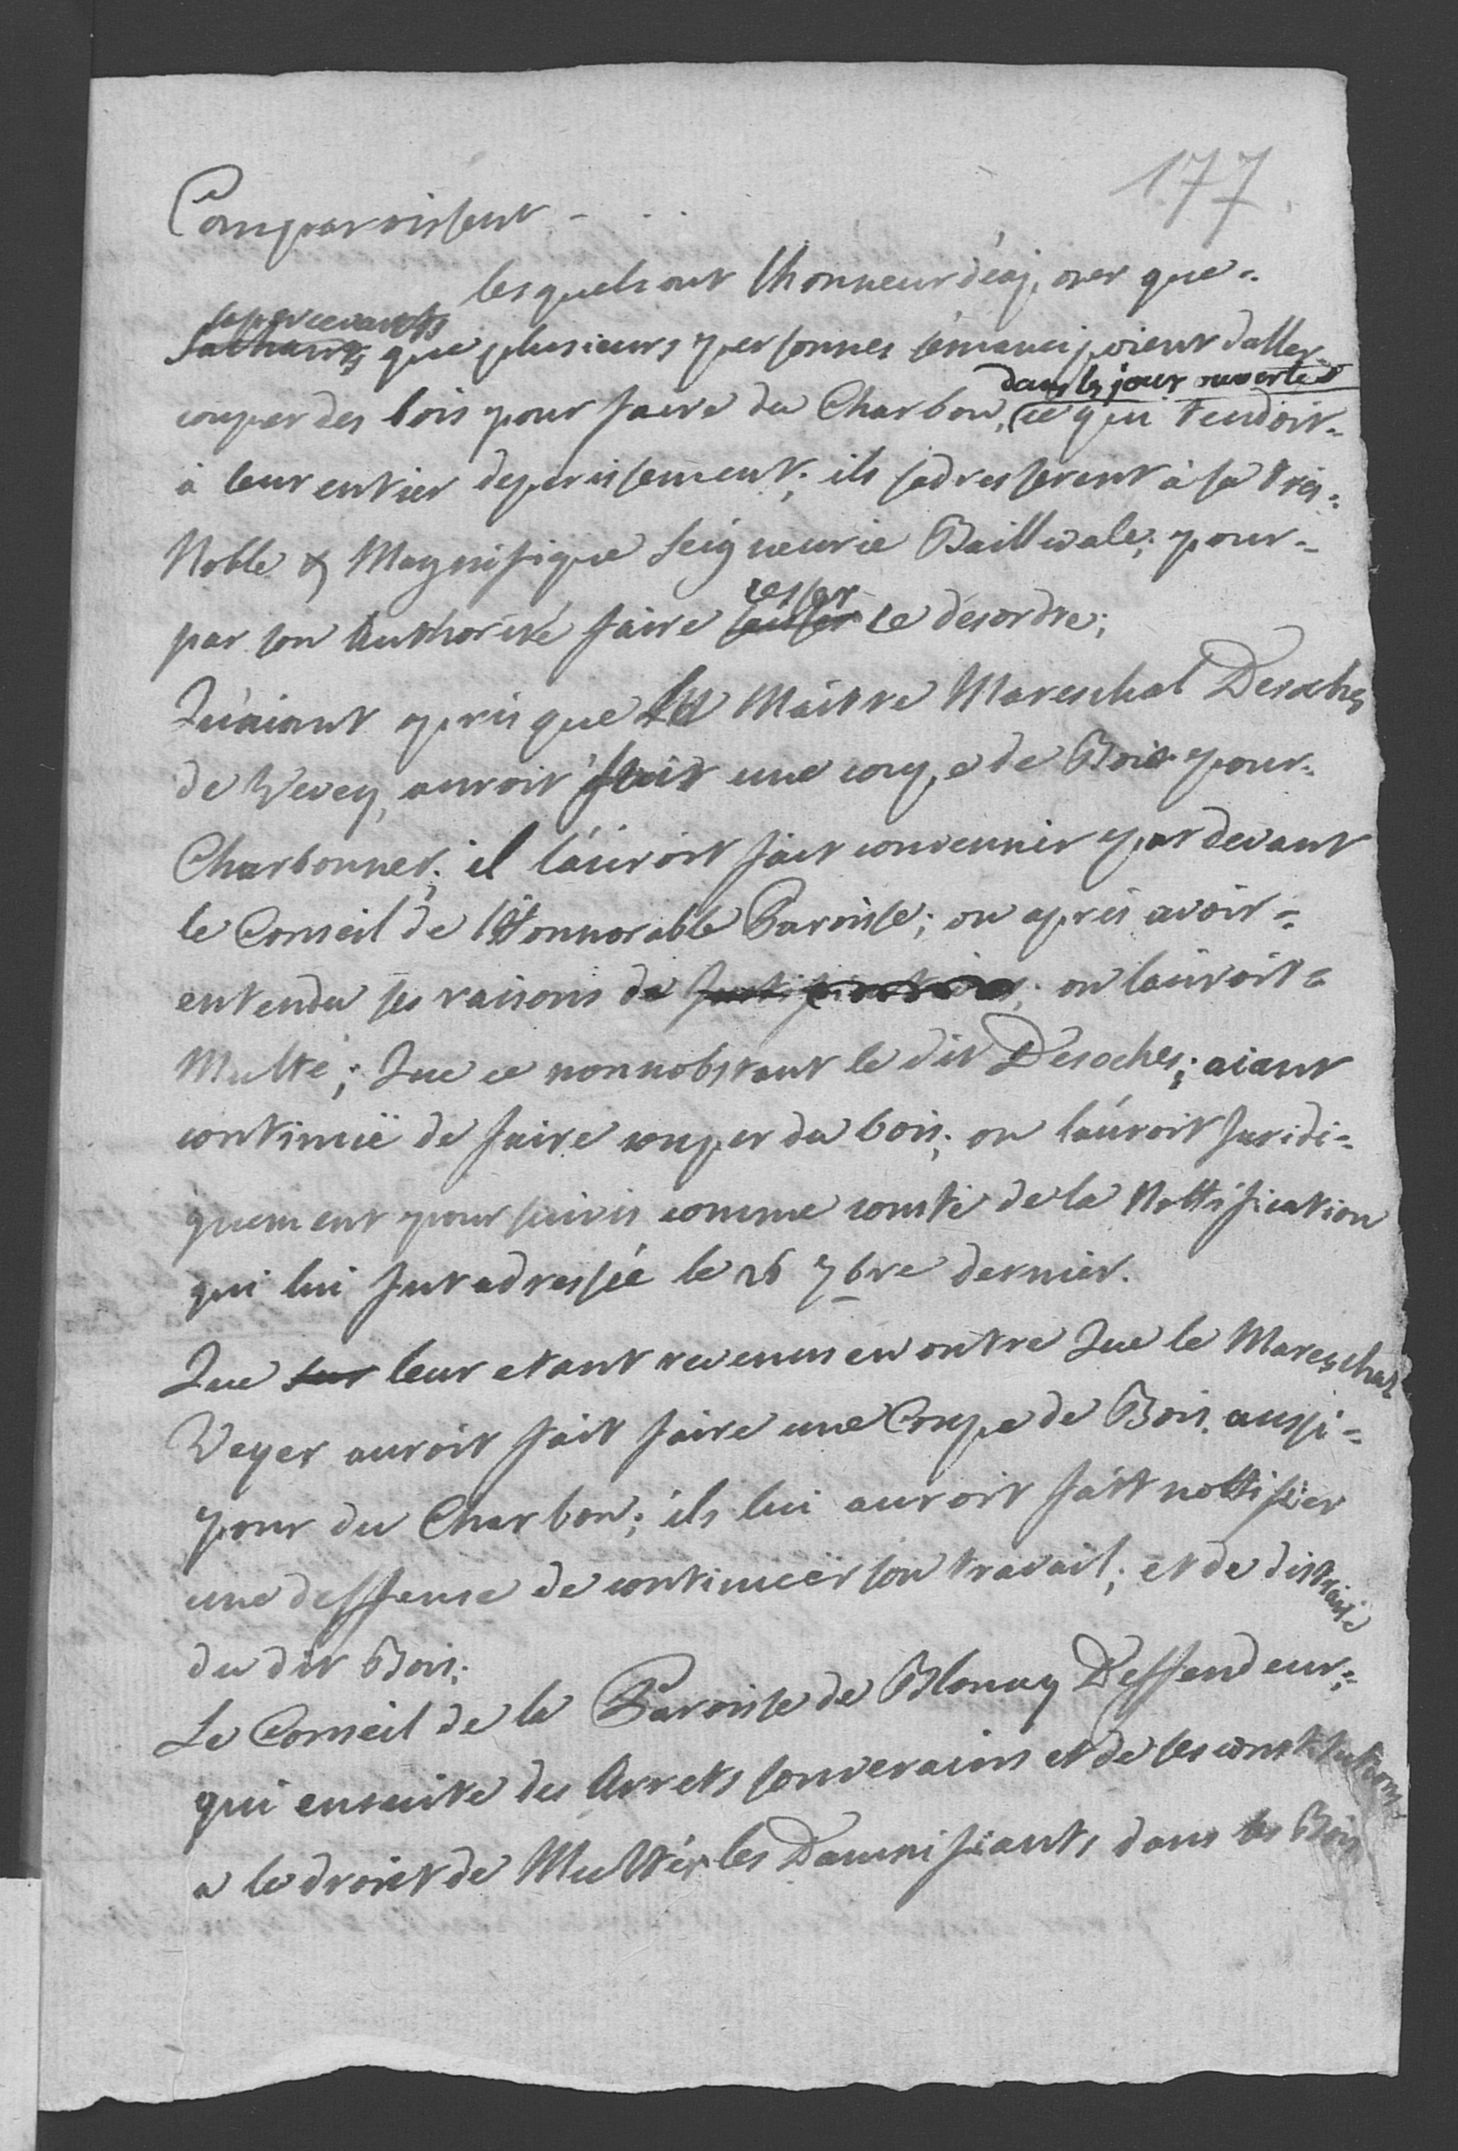 177
Comparoissent - . .
lesquels ont lhonneur d'éxposer que-
sapercevants
Sachants que plusieurs personnes s'émancipoient daller-
dans les joux ouvertes
couper des bois pour faire du Charbon, ce qui tendoit-
à leur entier deperissement; ils sadresserent à sa très-
Noble & Magnifique Seigneurie Baillivale; pour-
cesser
par son Authorité faire le désordre;
Qu'aiant pris que Me Maitre Mareschal Desoches
de Vevey, auroit fait une coupe de Bois pour-
Charbonner; il l'auroit fait convennir par devant
le Conseil de l'Honnorable Paroisse; ou après avoir-
entendu ses raisons de Justification; on lauroit-
Multé; Que ce nonnobstant le dit Desoches; aiant
continuë de faire couper du bois; on láuroit Juridi-
quement poursuivis comme conste de la Nottification
qui lui fut adressée le 26 7bre dernier.
Que sur leur etant revenus en outre Que le Mareschal
Veyer auroit fait faire une Coupe de Bois. aussi-
pour du Charbon; ils lui auroit fait nottifier
une deffense de continuër son travail; et de distraire
du dit Bois;
Le Conseil de la Paroisse de Blonay Deffendeur-;
qui ensuite des Arrets souverains et de ses constitutions
a le droict de Multér les Damnifiants dans les Bois